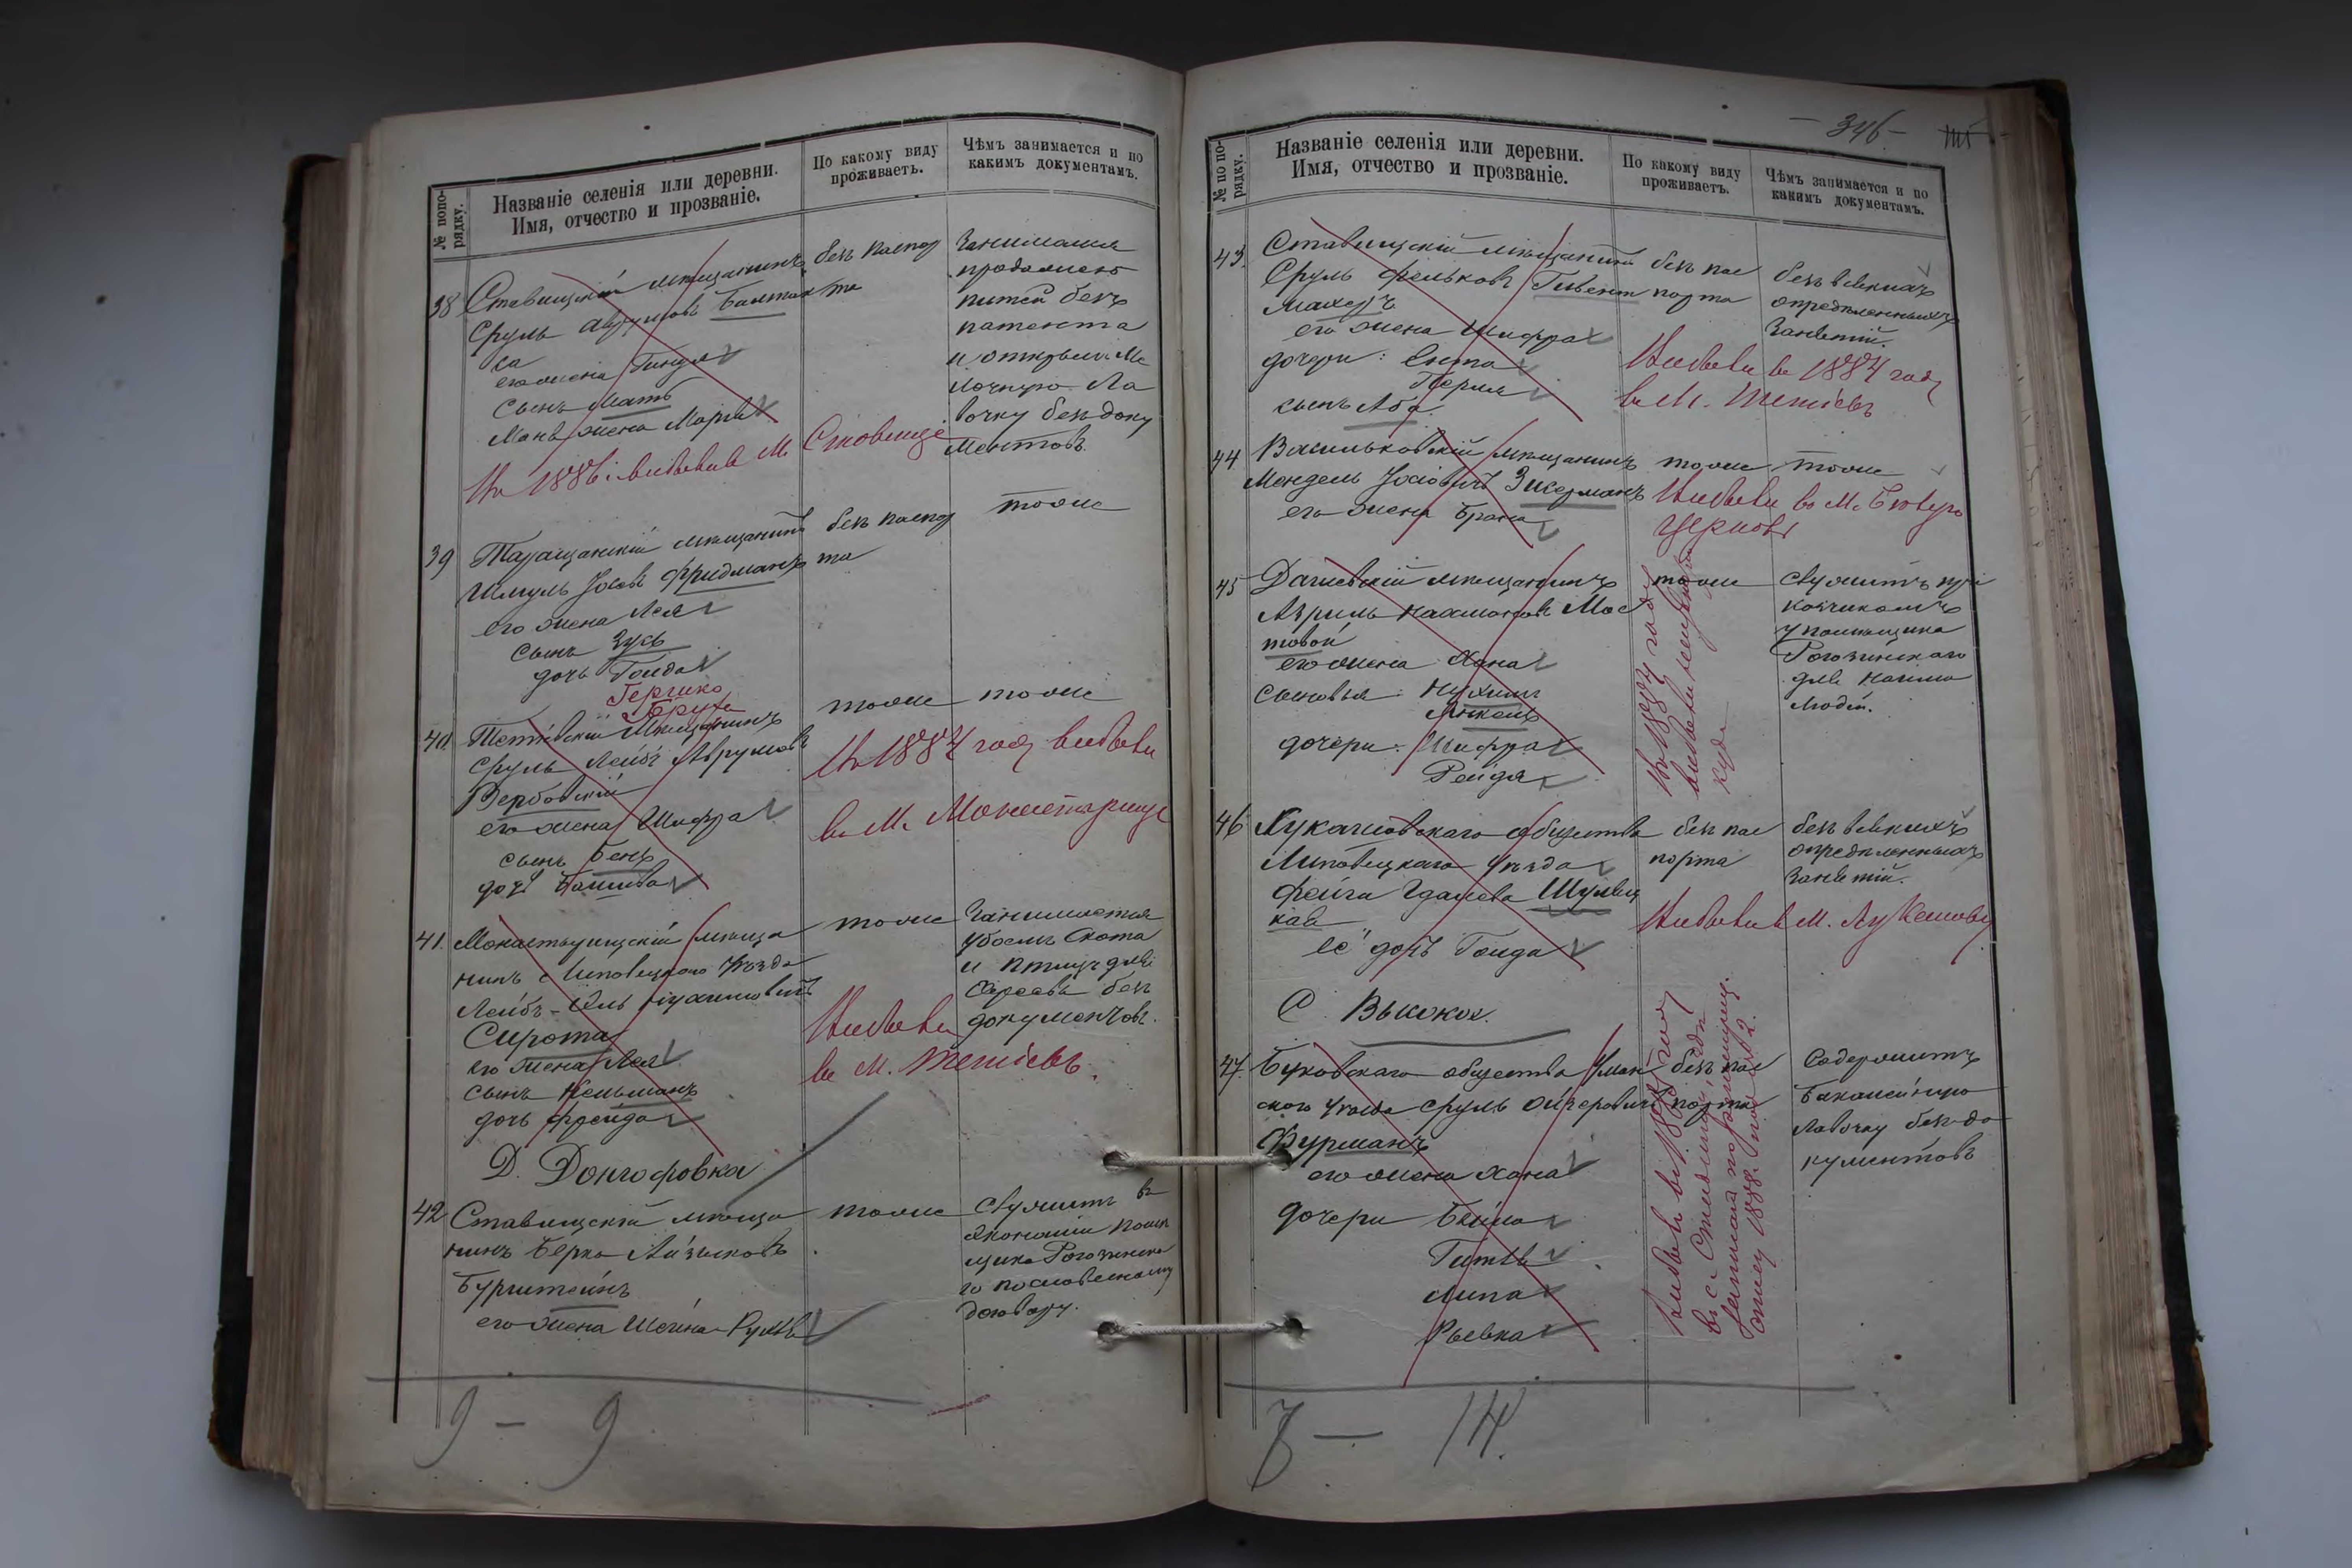 № по по-
рядку.
Названіе селенія или деревни.
Имя, отчество и прозваніе.
По какому виду
проживаетъ.
Чѣмъ занимается и по
какимъ документамъ.
38 Ставищскій мѣщанинъ
Сруль Аврумовъ
его жена
сынъ Мать
жена
безъ паспор
та
Занимался
продажею
питей безъ
патента
и открылъ Ме
лочную Ла
вочку безъ доку
ментовъ.
1886 г. выбылъ в М. Ставище
39 Таращанскій мѣщанинъ
Шмуль Іосіовъ Фридманъ
его жена Лея
сынъ Зусь
дочь Гольда
Гершко
Бруха
безъ паспор
та
тоже
40. Тетіевскій мѣщанинъ
Сруль Лейбъ Аврумовъ
Вербовскій
его жена Шифра
сынъ Бенъ
дочь
тоже
тоже
1887 году выбыли
в М. Монастырище
41. Монастырищскій мѣща
нинъ Липовецкого уѣзда
Лейбъ-
Сирота
его жена Лея
сынъ Кельманъ
дочь Фрейда
тоже
Занимается
убоемъ Скота
и птицъ для
Евреевъ безъ
документовъ.
Выбыли
в М. Тетіевъ.
Д. Долгофовка
42 Ставищскій мѣща
нинъ Берко Айзиковъ
Бурштейнъ
его жена Шейна-Рухля
тоже
Служитъ въ
экономіи помѣ
щика Рогозинска
го по словесному
договору.
9 — 9
— 346 —
№ по по-
рядку.
Названіе селенія или деревни.
Имя, отчество и прозваніе.
По какому виду
проживаетъ.
Чѣмъ занимается и по
какимъ документамъ.
43. Ставищскій мѣщанинъ
Сруль Фельковъ Гивент
махеръ
его жена Шифра
дочери: Ента
Перля
сынъ Аба.
безъ пас
порта
безъ всякихъ
опредѣленныхъ
Занятій.
Выбыли въ 1887 году
в М. Тетіевъ
44 Васильковскій мѣщанинъ
Мендель Іосіовичъ Зикерманъ
его жена Брана
тоже
тоже
Выбыли во М. Белую
Церковь
45 Дашевскій мѣщанинъ
Азриль Нахмановъ Мос
товой
его жена Хана
сыновья: Нухимъ
Янкель
дочери: Шифра
Рейдя
тоже
Служитъ при
кащикомъ
у помѣщика
Рогозинскаго
для найма
людей.
46. Лукашовскаго общества
Липовецкаго уѣзда
Фейга Гдалева Шуляц
кая
её дочь Гольда
безъ пас
порта
безъ всякихъ
опредѣленныхъ
Занятій.
Выбыли в М. Лукашовку
С. Высокое.
47. Буковскаго общества Уман
ского уѣзда Сруль Ойзеровичъ
Фурманъ
его жена Хана
дочери Бейла
Гитля
Липа
Рывка
безъ пас
порта
Содержитъ
Бакалейную
лавочку безъ до
кументовъ
7 — 14.